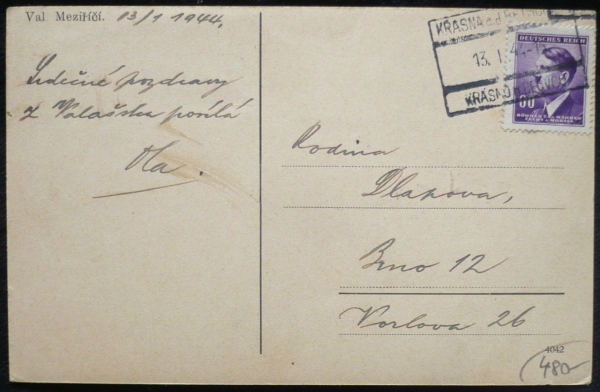 Val. Meziříčí. 13/1 1944.
Srdečné pozdravy
z Valašska posílá
Ola.
KRÁSNA n. d.
13. I. 4
KRÁSNO
DEUTSCHES REICH
60
BÖHMEN UND MÄHREN
ČECHY a MORAVA
Rodina
Dlapova,
Brno 12
Vorlova 26
4042
480-